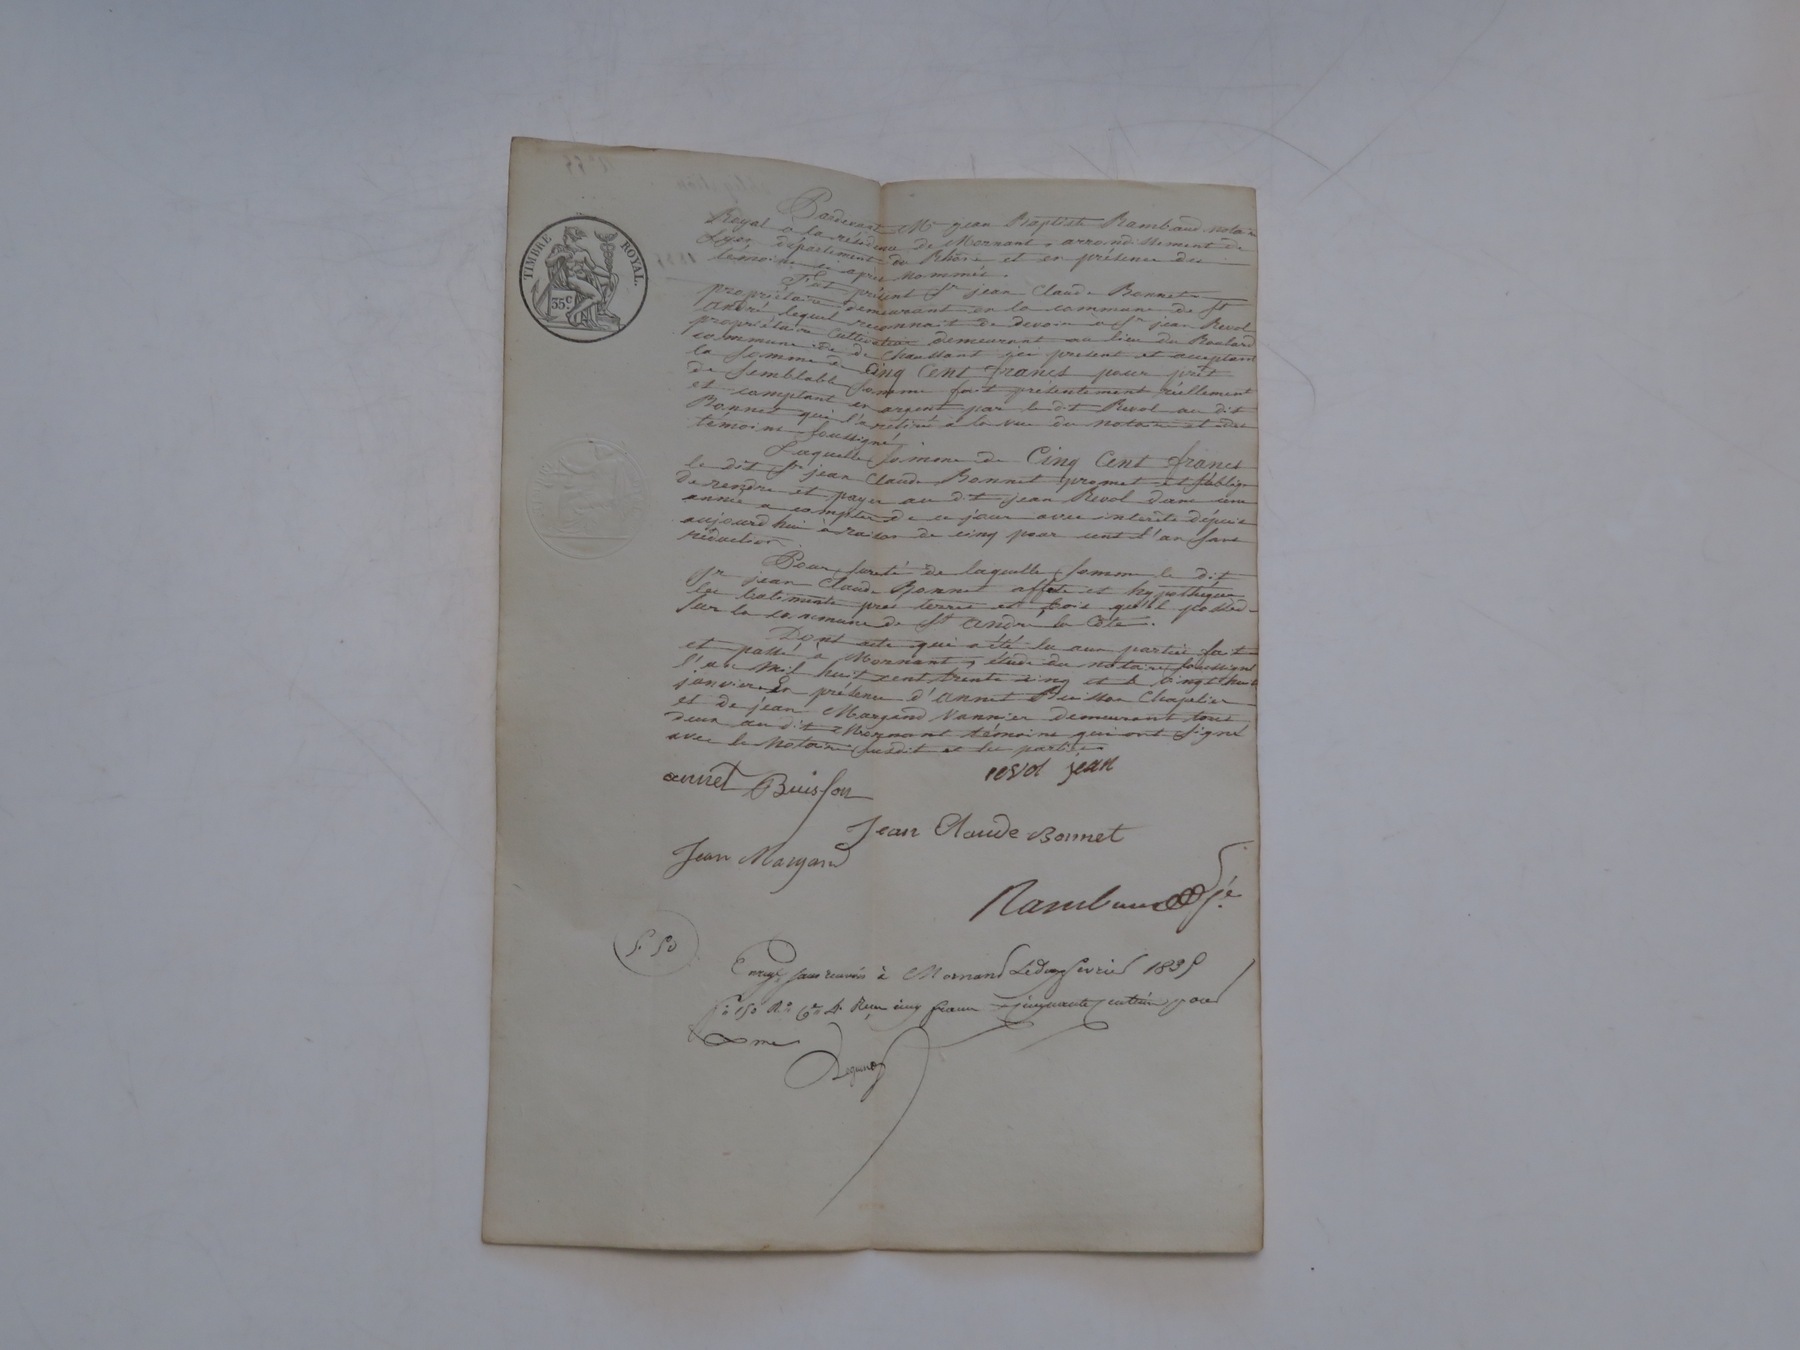 TIMBRE ROYAL.
35c
Pardevant Me jean Baptiste Rambaud notaire
Royal a la résidence de Mornant, arrondissement de
Lyon département du Rhône et en présence des
témoins ci apres nommés.
Fut présent Sr jean Claude Bonnet
propriétaire demeurant en la commune de St
andré lequel reconnait de devoir a Sr jean Revol
propriétaire Cultivateur demeurant au lieu du
commune de Chaussant ici présent et acceptant
la Somme de Cinq Cent francs pour prêt
de Semblable Somme fait présentement réellement
et comptant en argent par le dit Revol au dit
Bonnet qui l'a retiré a la vue du notaire et des
témoins soussignés.
Laquelle Somme de Cinq Cent francs
le dit Sr jean Claude Bonnet promet et s'oblige
de rendre et payer au dit jean Revol dans une
année a compter de ce jour avec intérêts depuis
aujourd'hui à raison de cinq pour cent l'an sans
réduction
Pour sureté de laquelle Somme le dit
Sr jean Claude Bonnet affecte et hypothèque
les batiments pres terres et bois qu'il possède
sur la commune de St andré la Côte.
Dont acte qui a été lu aux parties fait
et passé à Mornant, étude du notaire soussigné
l'an Mil huit cent trente cinq et le vingt huit
janvier En présence d'annet Buisson Chapelier
et de jean Margand Vannier demeurant tous
deux au dit Mornant témoins qui ont signé
avec le Notaire susdit et les parties
annet Buisson revol jean
Jean Claude Bonnet
Jean Margand
Rambaud
5. 50
à Mornand Le dix février 1835
cinq francs cinquante centimes pour